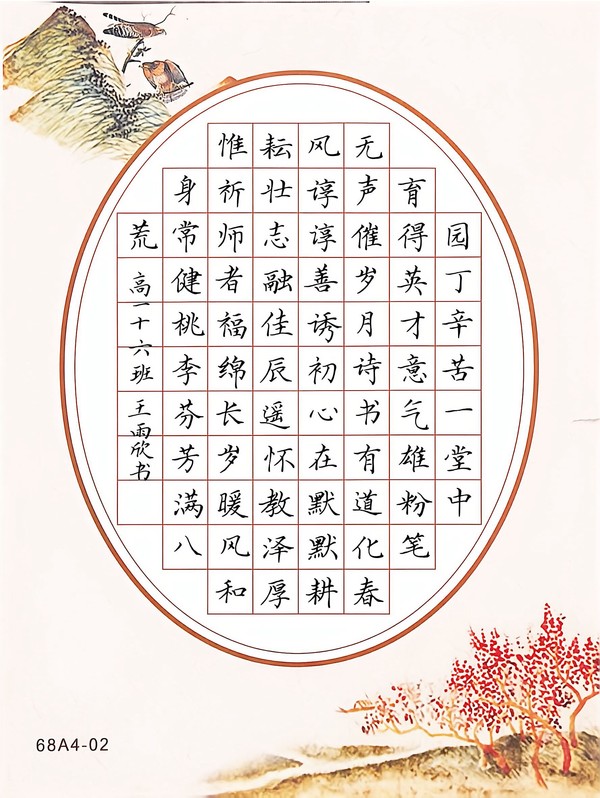 园丁辛苦一堂中
育得英才意气雄粉笔
无声催岁月诗书有道化春
风谆谆善诱初心在默默耕
耘壮志融佳辰遥怀教泽厚
惟祈师者福绵长岁暖风和
身常健桃李芬芳满八
荒
高一十六班王雨欣书
68A4-02